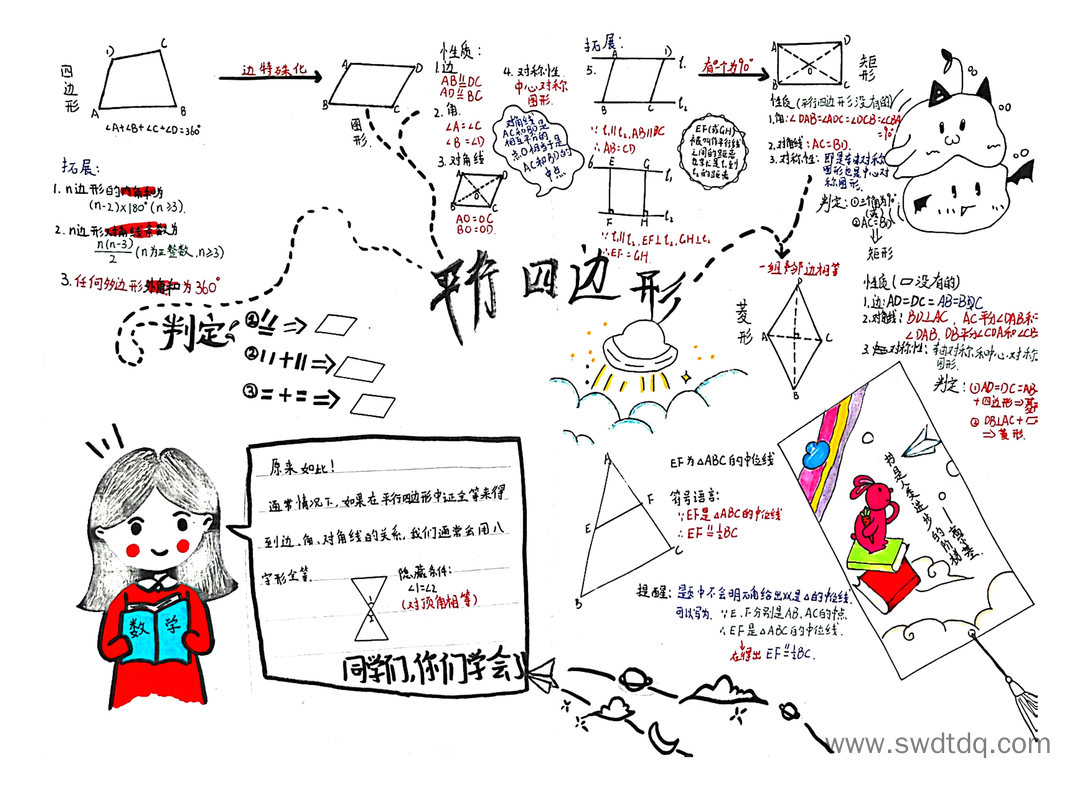 四边形
A
B
C
D
∠A+∠B+∠C+∠D=360°
边特殊化
A
D
B
C
图形
拓展:
1. n边形的内角和为
(n-2)×180°(n≥3).
2. n边形对角线条数为
n(n-3)/2 (n为正整数,n≥3)
3.任何多边形外角和为360°
性质:
1.边
AB∥DC
AD∥BC
2.角.
∠A=∠C
∠B=∠D
3.对角线
A
D
B
C
AO=OC
BO=OD.
4.对称性.
中心对称
图形.
对角线
AC和BD是
相互平分的
点O相当于是
AC和BD的
中点
拓展:
5.
A
D
l₁
B
C
l₂
∵l₁∥l₂,AB∥DC
∴AB=CD
6.
E
G
l₁
F
H
l₂
∵l₁∥l₂,EF⊥l₂,GH⊥l₂
∴EF=GH
EF(或GH)
被叫作平行线
之间的距离
有个为90°
A
D
B
C
O
矩形
性质(平行四边形没有的)
1.角:∠DAB=∠ADC=∠DCB=∠CBA
=90°
2.对角线:AC=BD.
3.对称性:即是轴对称
图形也是中心对
称图形.
判定:①三个角为90°
②AC=BD
⇓
矩形
一组邻边相等
菱形
D
A
C
B
性质(▱没有的)
1.边:AD=DC=AB=BC
2.对角线:BD⊥AC,AC平分∠DAB和
∠DAB,DB平分∠CDA和∠CB
3.对称性:轴对称和中心对称
图形.
判定:①AD=DC=AB
+四边形⇒菱
②DB⊥AC+▱
⇒菱形.
平行四边形
判定:
①
②
③
原来如此!
通常情况下,如果在平行四边形中证全等来得
到边、角、对角线的关系,我们通常会用八
字形全等.
1
2
隐藏条件:
∠1=∠2
(对顶角相等)
同学们,你们学会了
数学
A
E
F
B
C
EF为△ABC的中位线
符号语言:
∵EF是△ABC的中位线
∴EF∥=½BC
提醒:题中不会明确给出XX是△的中位线
可以写为:∵E、F分别是AB、AC的中点
∴EF是△ABC的中位线.
在得出EF∥=½BC.
书是人类进步的阶梯
——高尔基.
www.swdtdq.com